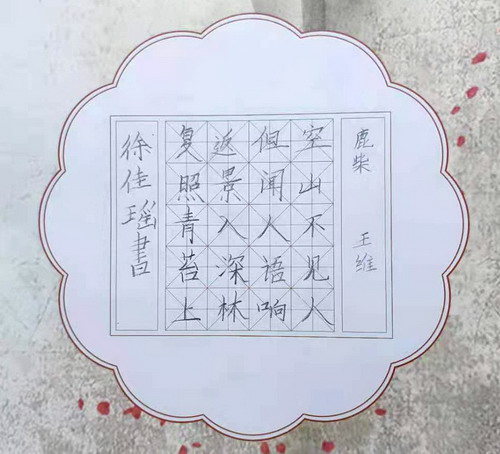 鹿柴 王维
空山不见人
但闻人语响
返景入深林
复照青苔上
徐佳瑶書